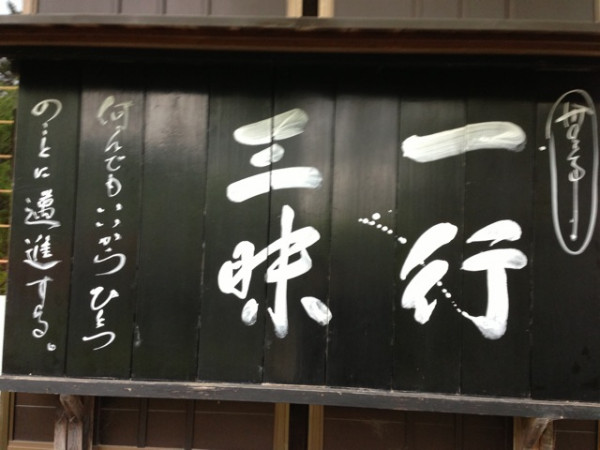 一行
三昧
何んでもいいからひとつ
のことに邁進する。